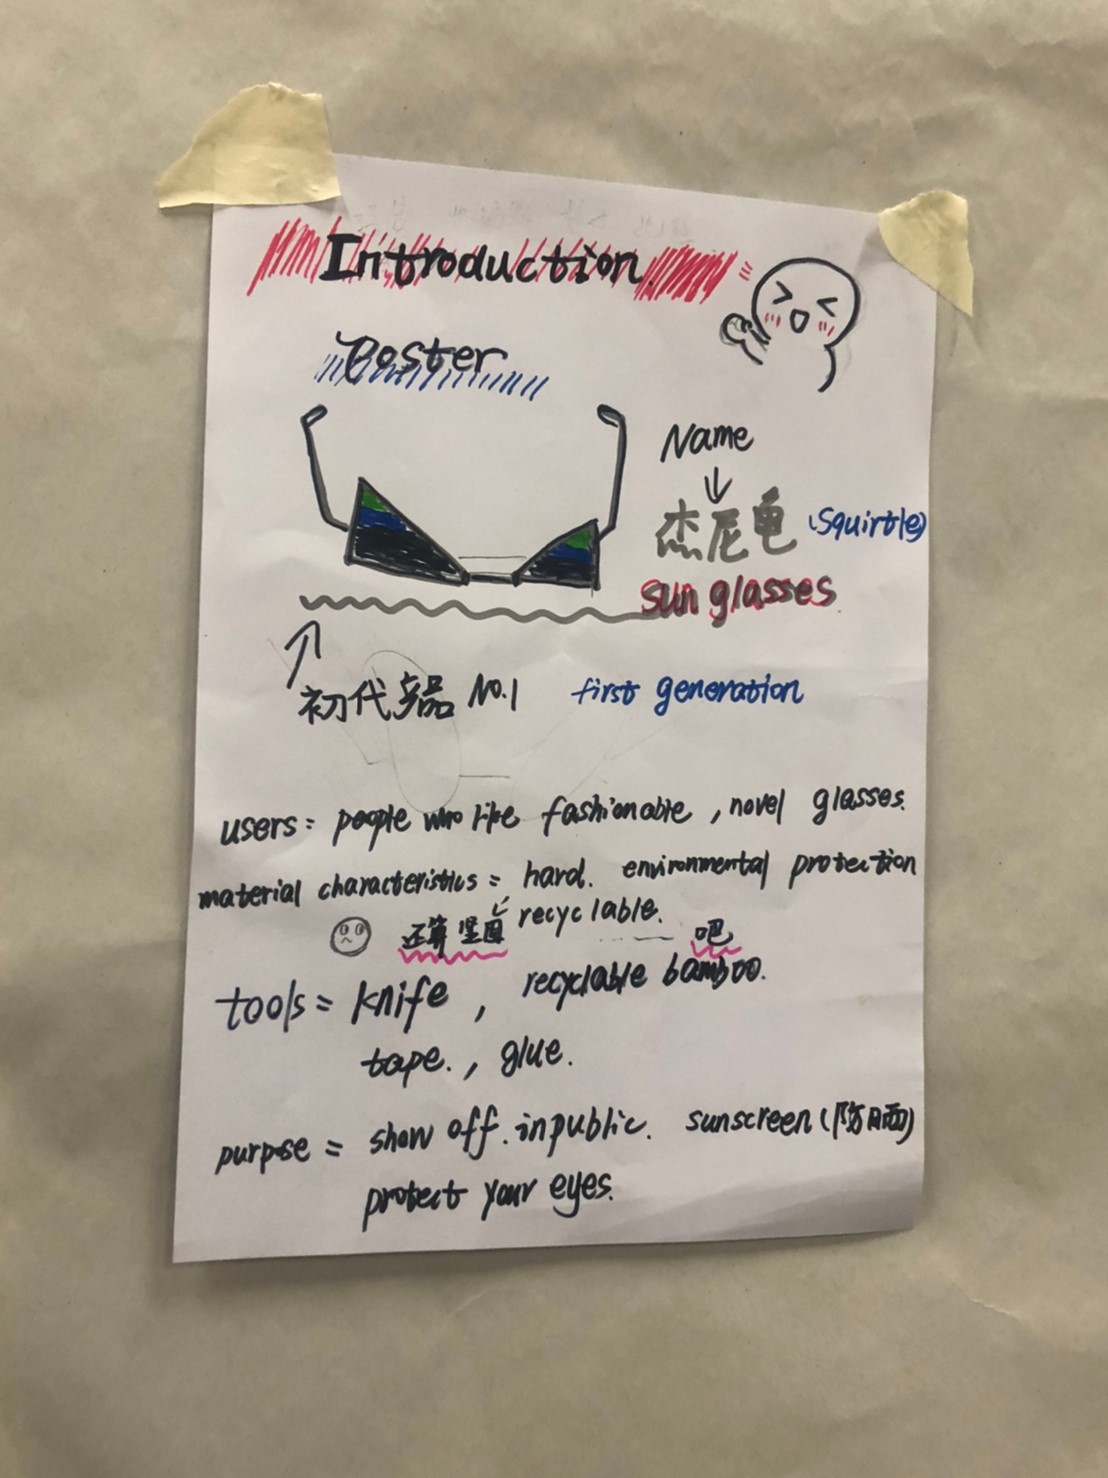 Introduction
Poster
Name
杰尼龟 (Squirtle)
sun glasses
初代产品 No.1 first generation
users = people who like fashionable , novel glasses.
material characteristics = hard. environmental protection
recyclable.
还算坚固 吧
tools = knife , recyclable bamboo.
tape. , glue.
purpose = show off. in public. sunscreen (防晒)
protect your eyes.